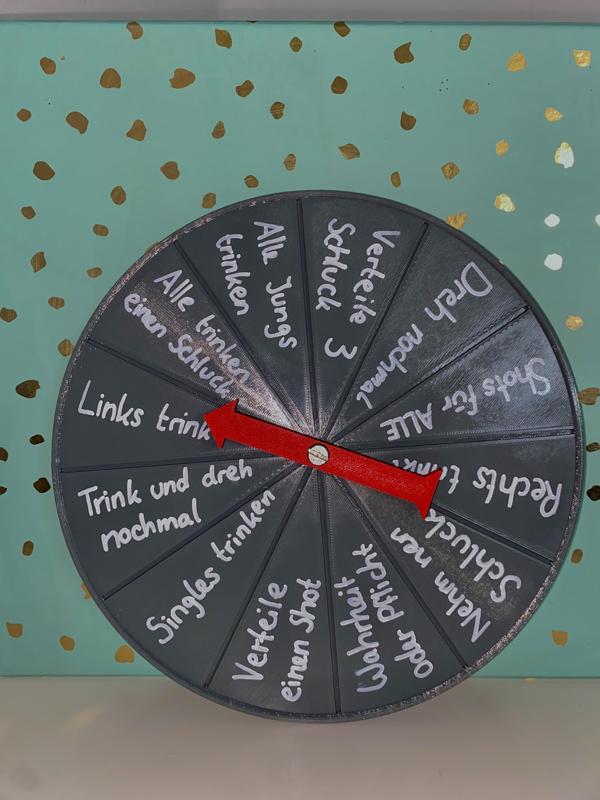 Verteile 3
Schluck
Dreh nochmal
Shots für ALLE
Rechts trinkt
Nehm nen
Schluck
Wahrheit
oder Pflicht
Verteile
einen Shot
Singles trinken
Trink und dreh
nochmal
Links trinkt
Alle trinken
einen Schluck
Alle Jungs
trinken